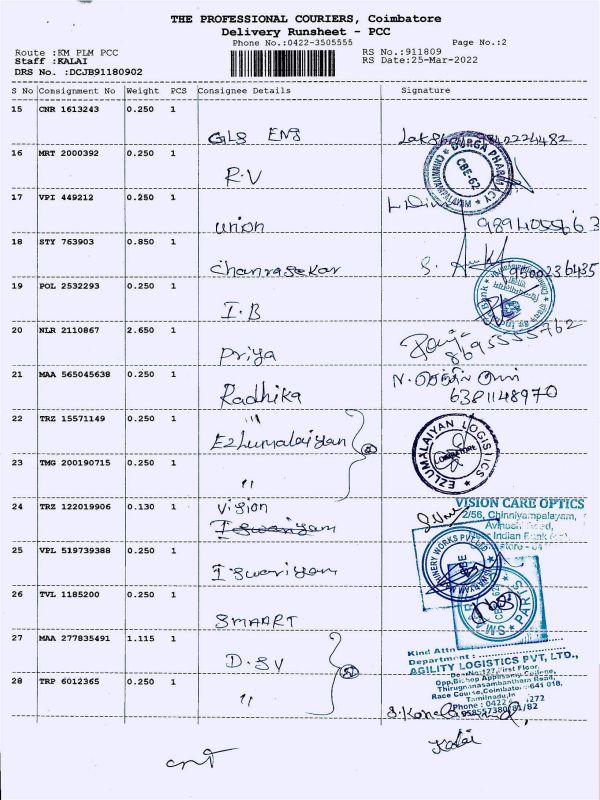 THE PROFESSIONAL COURIERS, Coimbatore
Delivery Runsheet - PCC
Phone No.:0422-3505555 Page No.:2
Route :KM PLM PCC RS No.:911809
Staff :KALAI RS Date:25-Mar-2022
DRS No. :DCJB91180902
S No Consignment No Weight PCS Consignee Details Signature
15 CNR 1613243 0.250 1
GLS ENG
16 MRT 2000392 0.250 1
R.V
DURGA PHARMACY
CBE-62
CHINNIYAMPALAYAM
17 VPI 449212 0.250 1
Union 9894055663
18 STY 763903 0.850 1
Chanrasekar 9500236435
19 POL 2532293 0.250 1
I.B
Bank
20 NLR 2110867 2.650 1
Priya 8695555762
21 MAA 565045638 0.250 1
Radhika 6381148970
22 TRZ 15571149 0.250 1
Ezhumalaiyan
EZLUMALAIYAN LOGISTICS
COIMBATORE
23 TMG 200190715 0.250 1
"
24 TRZ 122019906 0.130 1 Vision
VISION CARE OPTICS
2/56, Chinniyampalayam,
Avinashi Road,
Indian Bank
25 VPL 519739388 0.250 1
Iswariyam
MACHINERY WORKS PVT LTD
26 TVL 1185200 0.250 1
SMAART
SM PARTS
27 MAA 277835491 1.115 1
D.SV
Kind Attn
Department :
AGILITY LOGISTICS PVT, LTD.,
Door No:127, First Floor,
Opp, Bishop Appasamy College,
Thirugnanasambantham Road,
Race Course, Coimbatore-641 018,
Tamilnadu, In
Phone : 0422 1272
9585573801/81/82
28 TRP 6012365 0.250 1
"
Kalai